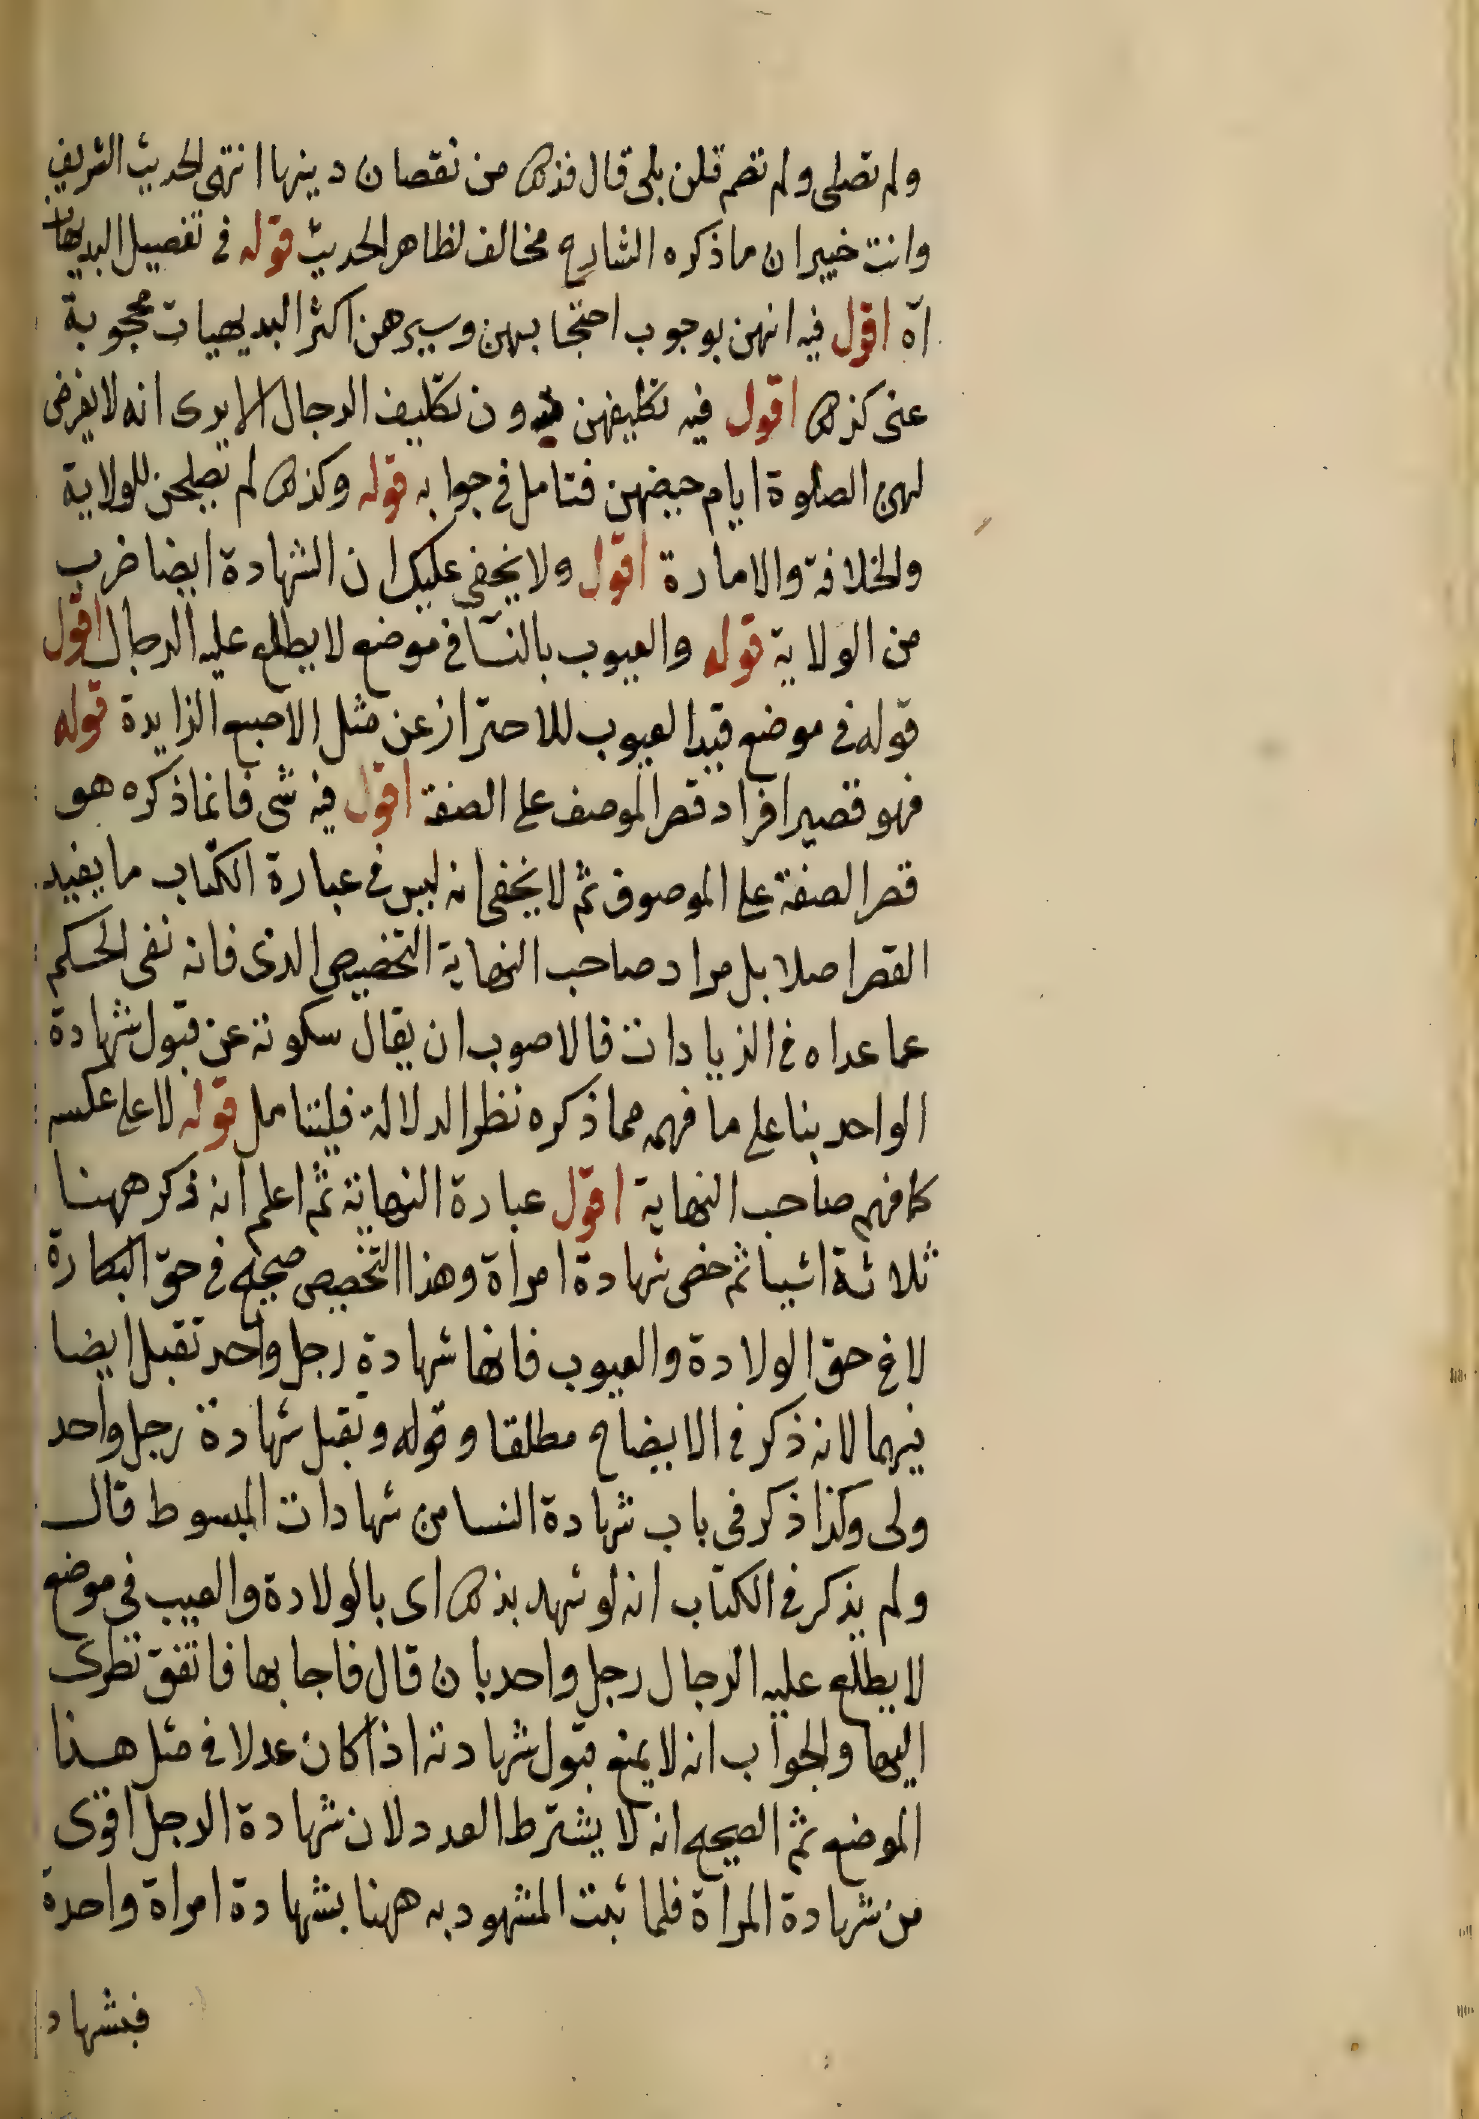 ولم تصلى ولم تصم قلن بلى قال فذلك من نقصان دينها انتهى الحديث الشريف
وانت خبير ان ما ذكره الشارح مخالف لظاهر الحديث قوله فى تفصيل البديهات
اه اقول فيه انهن بوجوب احتجابهن وسيرهن اكثر البديهيات محجوبة
عنى كذلك اقول فيه تكليفهن دون تكليف الرجال الا يرى انه لا يفرض
لهن الصلوة ايام حيضهن فتامل فى جوابه قوله وكذلك لم تصلحن للولاية
والخلافة والامارة اقول ولا يخفى عليك ان الشهادة ايضا ضرب
من الولاية قوله والعيوب بالنسآ فى موضع لا يطلع عليه الرجال اقول
قوله فى موضع قيد العيوب للاحتراز عن مثل الاصبع الزايدة قوله
فهو قصير افراد قصر الموصف على الصفة اقول فيه شى فانما ذكره هو
قصر الصفة على الموصوف ثم لا يخفى انه ليس فى عبارة الكتاب ما يفيد
القصر اصلا بل مراد صاحب النهاية التخصيص الذى فانه نفى الحكم
عما عداه فى الزيادات فالاصوب ان يقال سكوته عن قبول شهادة
الواحد بنا على ما فهمه مما ذكره نظر الدلالة فليتامل قوله لا على عكسه
كما فهم صاحب النهاية اقول عبارة النهاية ثم اعلم انه ذكر ههنا
ثلاثة اشيا ثم خص شهادة امراة وهذا التخصيص صحيح فى حق البكارة
لا فى حق الولادة والعيوب فانها شهادة رجل واحد تقبل ايضا
فيهما لانه ذكر فى الايضاح مطلقا وقوله وتقبل شهادة رجل واحد
ولى وكذا ذكر فى باب شهادة النسا من شهادات المبسوط قال
ولم يذكر فى الكتاب انه لو شهد بذلك اى بالولادة والعيب فى موضع
لا يطلع عليه الرجال رجل واحد بان قال فاجابها فاتفق نظرى
اليها والجواب انه لا يمنع قبول شهادته اذا كان عدلا فى مثل هذا
الموضع ثم الصحيح انه لا يشترط العدد لان شهادة الرجل اقوى
من شهادة المراة فلما ثبت المشهود به ههنا بشهادة امراة واحدة
فبشهاد